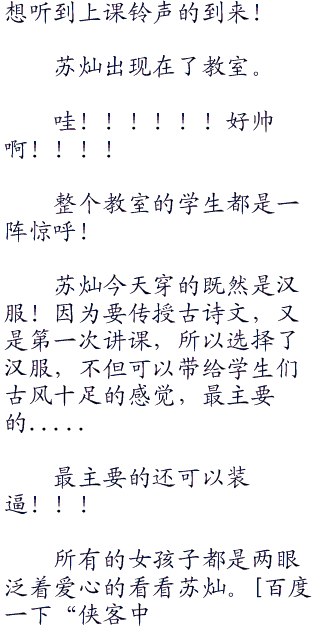 想听到上课铃声的到来！
苏灿出现在了教室。
哇！！！！！！好帅
啊！！！！
整个教室的学生都是一
阵惊呼！
苏灿今天穿的既然是汉
服！因为要传授古诗文，又
是第一次讲课，所以选择了
汉服，不但可以带给学生们
古风十足的感觉，最主要
的.....
最主要的还可以装
逼！！！
所有的女孩子都是两眼
泛着爱心的看看苏灿。[百度
一下“侠客中